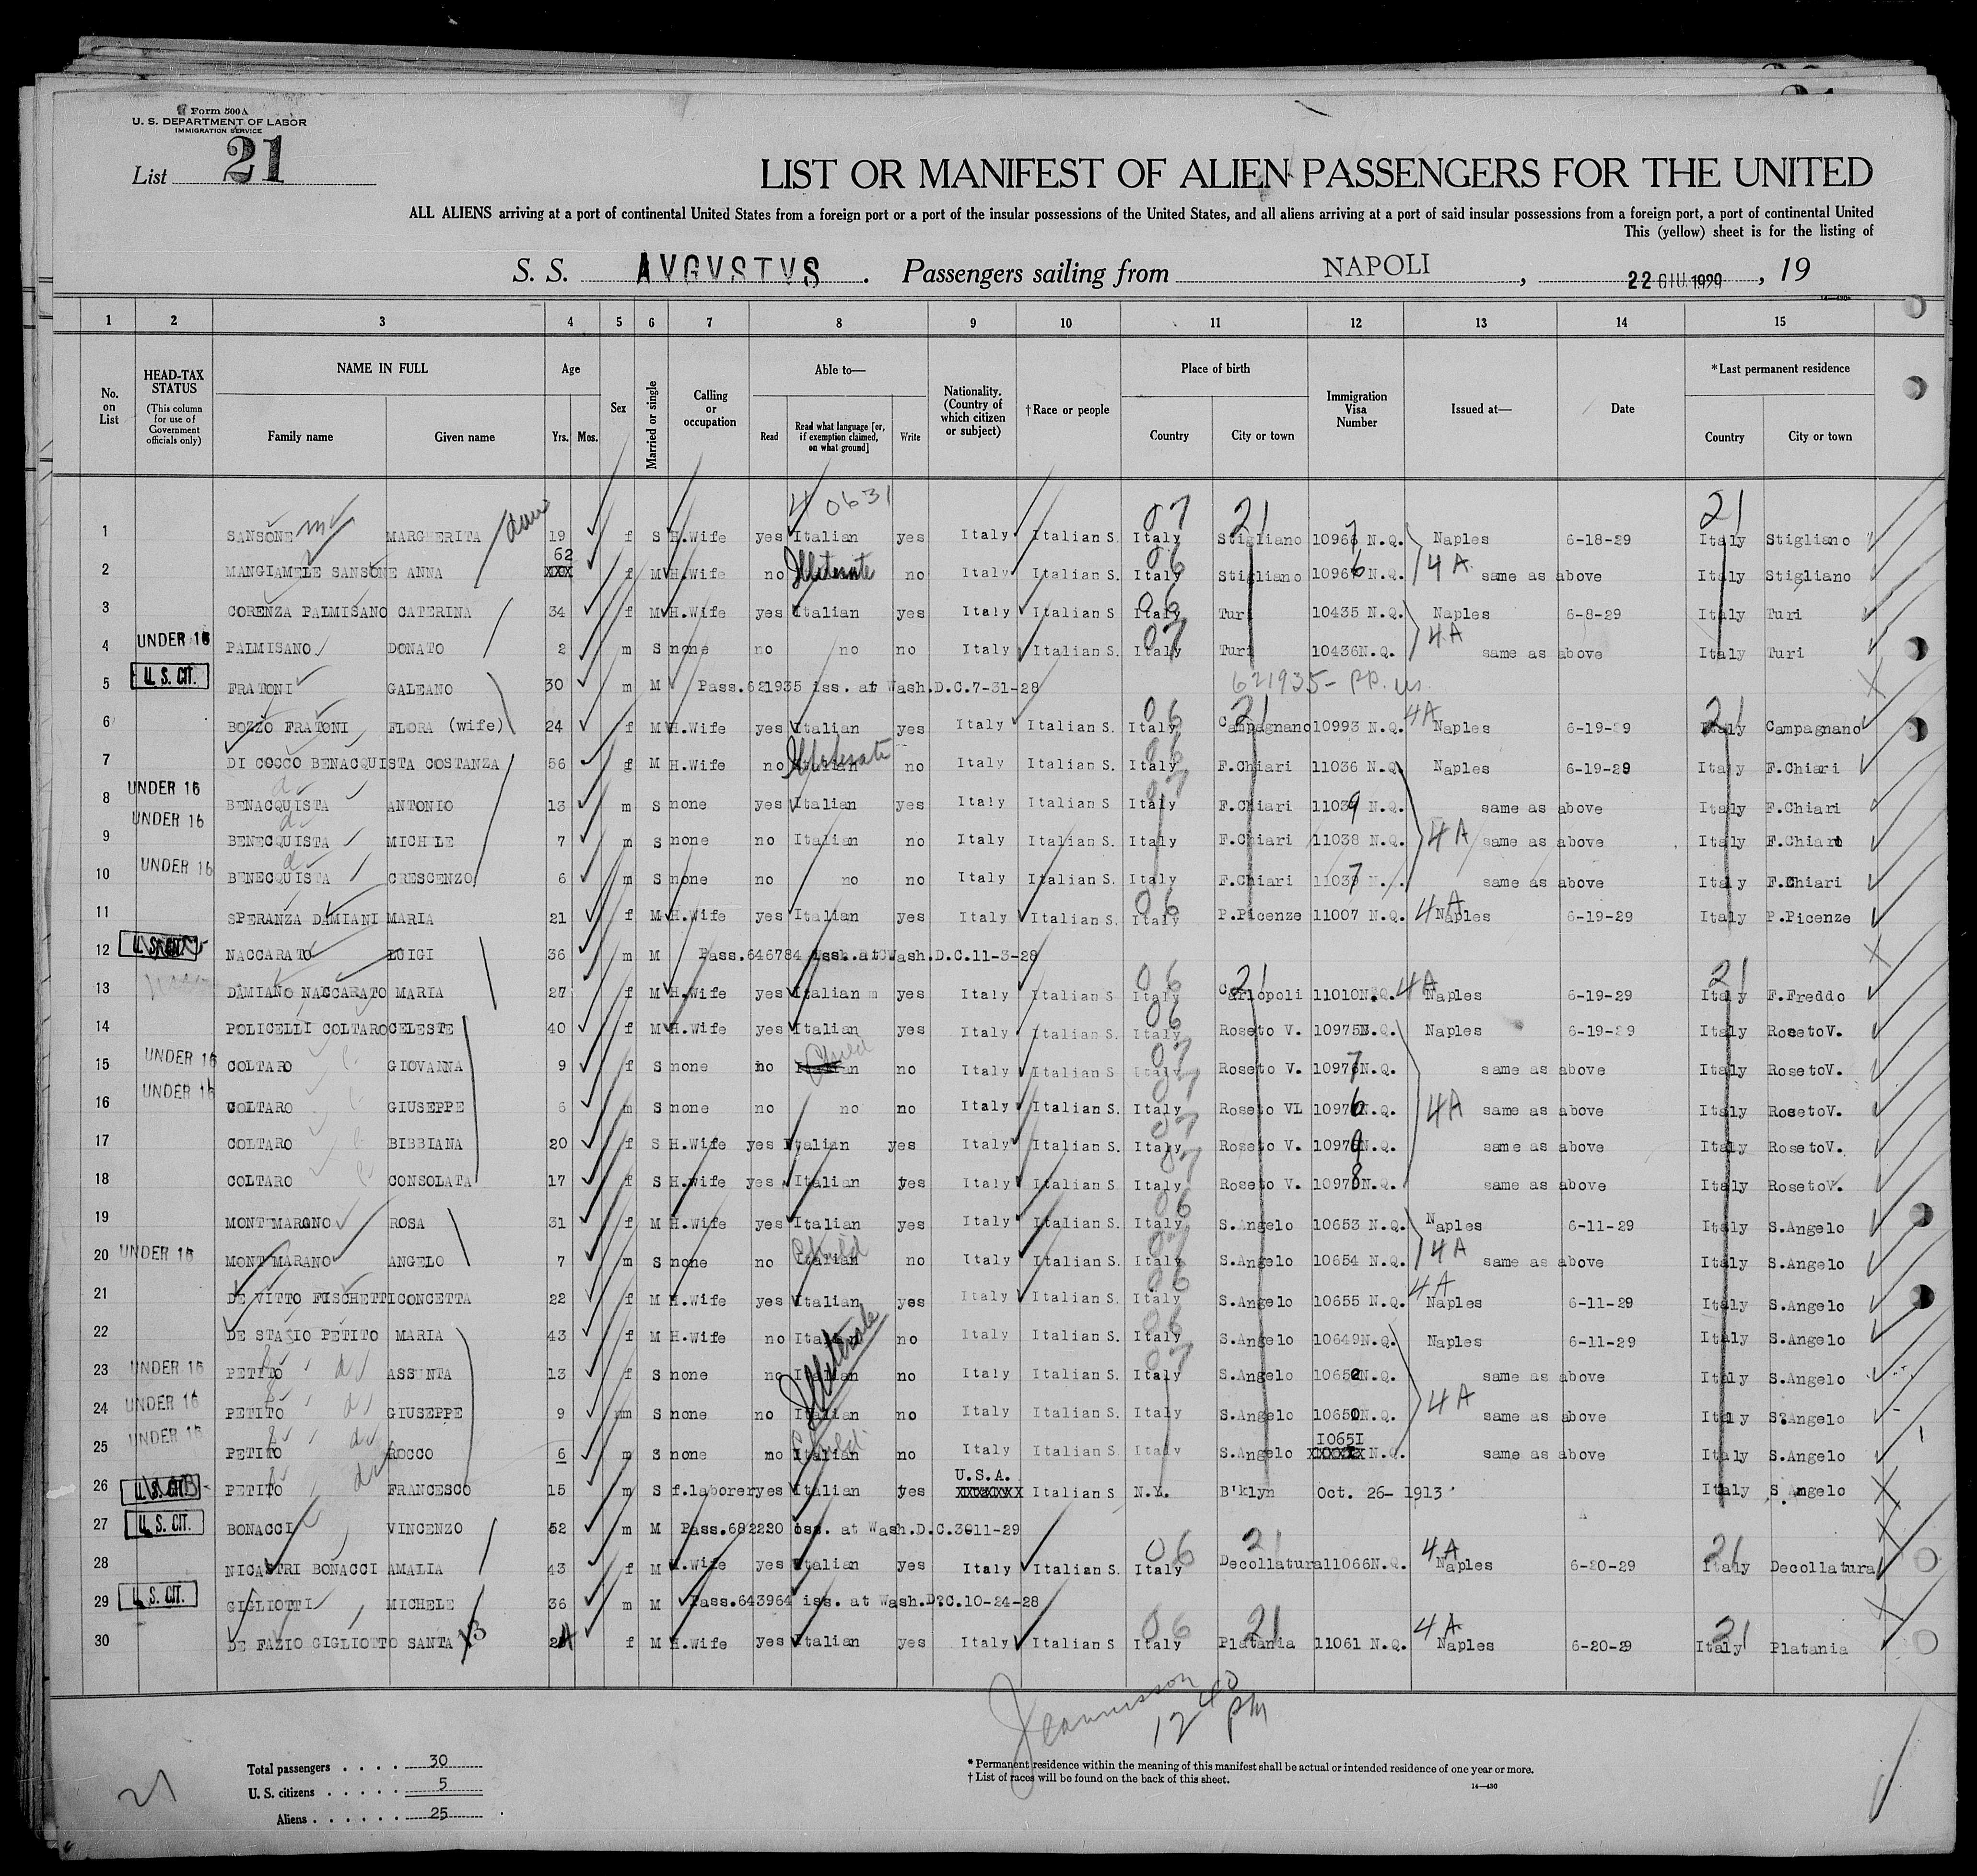 Form 500A
U. S. DEPARTMENT OF LABOR
IMMIGRATION SERVICE
List 21
LIST OR MANIFEST OF ALIEN PASSENGERS FOR THE UNITED
ALL ALIENS arriving at a port of continental United States from a foreign port or a port of the insular possessions of the United States, and all aliens arriving at a port of said insular possessions from a foreign port, a port of continental United
This (yellow) sheet is for the listing of
S. S. AVGVSTVS . Passengers sailing from NAPOLI , 22 GIU. 1929 , 19
14—430
1 2 3 4 5 6 7 8 9 10 11 12 13 14 15
No. on List
HEAD-TAX STATUS (This column for use of Government officials only)
NAME IN FULL
Family name Given name
Age
Yrs. Mos.
Sex
Married or single
Calling or occupation
Able to—
Read
Read what language [or, if exemption claimed, on what ground]
Write
Nationality. (Country of which citizen or subject)
†Race or people
Place of birth
Country City or town
Immigration Visa Number
Issued at—
Date
*Last permanent residence
Country City or town
4 0631
07 21 21
1 SANSONE MARGHERITA 19 f S H.Wife yes Italian yes Italy Italian S. Italy Stigliano 10967 N.Q. Naples 6-18-29 Italy Stigliano
2 MANGIAMELE SANSONE ANNA 62 f M H.Wife no Illiterate no Italy Italian S. 06 Italy Stigliano 10966 N.Q. 4A same as above Italy Stigliano
3 CORENZA PALMISANO CATERINA 34 f M H.Wife yes Italian yes Italy Italian S. 06 Italy Turi 10435 N.Q. Naples 6-8-29 Italy Turi
4 UNDER 16 PALMISANO DONATO 2 m S none no no no Italy Italian S. 07 Italy Turi 10436N.Q. 4A same as above Italy Turi
5 U. S. CIT. FRATONI GALEANO 30 m M Pass.621935 iss. at Wash.D.C.7-31-28 621935- PP. us
6 BOZZO FRATONI FLORA (wife) 24 f M H.Wife yes Italian yes Italy Italian S. 06 Italy 21 Campagnano 10993 N.Q. 4A Naples 6-19-29 21 Italy Campagnano
7 DI COCCO BENACQUISTA COSTANZA 56 f M H.Wife no Italian Illiterate no Italy Italian S. 06 Italy F.Chiari 11036 N.Q. Naples 6-19-29 Italy F.Chiari
8 UNDER 16 BENACQUISTA ANTONIO 13 m S none yes Italian yes Italy Italian S 07 Italy F.Chiari 11039 N.Q. same as above Italy F.Chiari
9 UNDER 16 BENECQUISTA MICHELE 7 m S none no Italian no Italy Italian S. Italy F.Chiari 11038 N.Q. 4A same as above Italy F.Chiari
10 UNDER 16 BENECQUISTA CRESCENZO 6 m S none no no no Italy Italian S. Italy F.Chiari 11037 N. same as above Italy F.Chiari
11 SPERANZA DAMIANI MARIA 21 f M H.Wife yes Italian yes Italy Italian S. 06 Italy P.Picenze 11007 N.Q. 4A Naples 6-19-29 Italy P.Picenze
12 U. S. CIT. NACCARATO LUIGI 36 m M Pass.646784 iss. at Wash.D.C.11-3-28
13 DAMIANO NACCARATO MARIA 27 f M H.Wife yes Italian yes Italy Italian S 06 Italy 21 Carlopoli 11010N.Q. 4A Naples 6-19-29 21 Italy F.Freddo
14 POLICELLI COLTARO CELESTE 40 f M H.Wife yes Italian yes Italy Italian S. 06 Italy Roseto V. 10975N.Q. Naples 6-19-29 Italy RosetoV.
15 UNDER 16 COLTARO GIOVANNA 9 f S none no Child no Italy Italian S 07 Italy Roseto V. 10977N.Q. same as above Italy RosetoV.
16 UNDER 16 COLTARO GIUSEPPE 6 m S none no no no Italy Italian S. 07 Italy Roseto VL 10976N.Q. 4A same as above Italy RosetoV.
17 COLTARO BIBBIANA 20 f S H.Wife yes Italian yes Italy Italian S. 07 Italy Roseto V. 10979N.Q. same as above Italy RosetoV.
18 COLTARO CONSOLATA 17 f S H.Wife yes Italian yes Italy Italian S. 07 Italy Roseto V. 10978N.Q. same as above Italy RosetoV.
19 MONTEMARGNO ROSA 31 f M H.Wife yes Italian yes Italy Italian S. 06 Italy S.Angelo 10653 N.Q. Naples 6-11-29 Italy S.Angelo
20 UNDER 16 MONTEMARANO ANGELO 7 m S none no Italian Child no Italy Italian S. 07 Italy S.Angelo 10654 N.Q. 4A same as above Italy S.Angelo
21 DE VITTO FISCHETTI CONCETTA 22 f M H.Wife yes Italian yes Italy Italian S. 06 Italy S.Angelo 10655 N.Q. 4A Naples 6-11-29 Italy S.Angelo
22 DE STASIO PETITO MARIA 43 f M H.Wife no Italian Illiterate no Italy Italian S. 06 Italy S.Angelo 10649N.Q. Naples 6-11-29 Italy S.Angelo
23 UNDER 16 PETITO ASSUNTA 13 f S none no Italian no Italy Italian S. 07 Italy S.Angelo 10652N.Q. same as above Italy S.Angelo
24 UNDER 16 PETITO GIUSEPPE 9 m S none no Italian no Italy Italian S. Italy S.Angelo 10650N.Q. 4A same as above Italy S?Angelo
25 UNDER 16 PETITO ROCCO 6 m S none no Italian Child no Italy Italian S. Italy S.Angelo 10651 N.Q. same as above Italy S.Angelo
26 U. S. CIT. PETITO FRANCESCO 15 m S f.laborer yes Italian yes U.S.A. Italian S N.Y. B'klyn Oct. 26- 1913 Italy S Angelo
27 U. S. CIT. BONACCI VINCENZO 52 m M Pass.682220 iss. at Wash.D.C.3011-29
28 NICASTRI BONACCI AMALIA 43 f M H.Wife yes Italian yes Italy Italian S. 06 Italy 21 Decollatura 11066N.Q. 4A Naples 6-20-29 21 Italy Decollatura
29 U. S. CIT. GIGLIOTTI MICHELE 36 m M Pass.643964 iss. at Wash.D.C.10-24-28
30 DE FAZIO GIGLIOTTO SANTA 13 24 f M H.Wife yes Italian yes Italy Italian S 06 Italy 21 Platania 11061 N.Q. 4A Naples 6-20-29 21 Italy Platania
12 40 pm
Total passengers . . . . 30
U. S. citizens . . . . . 5
Aliens . . . . . . 25
21
* Permanent residence within the meaning of this manifest shall be actual or intended residence of one year or more.
† List of races will be found on the back of this sheet.
14—430